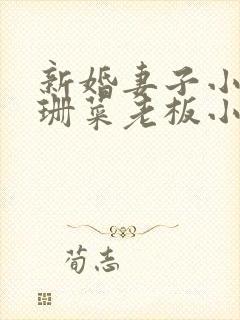 新婚妻子小
珊菜老板小
荀志